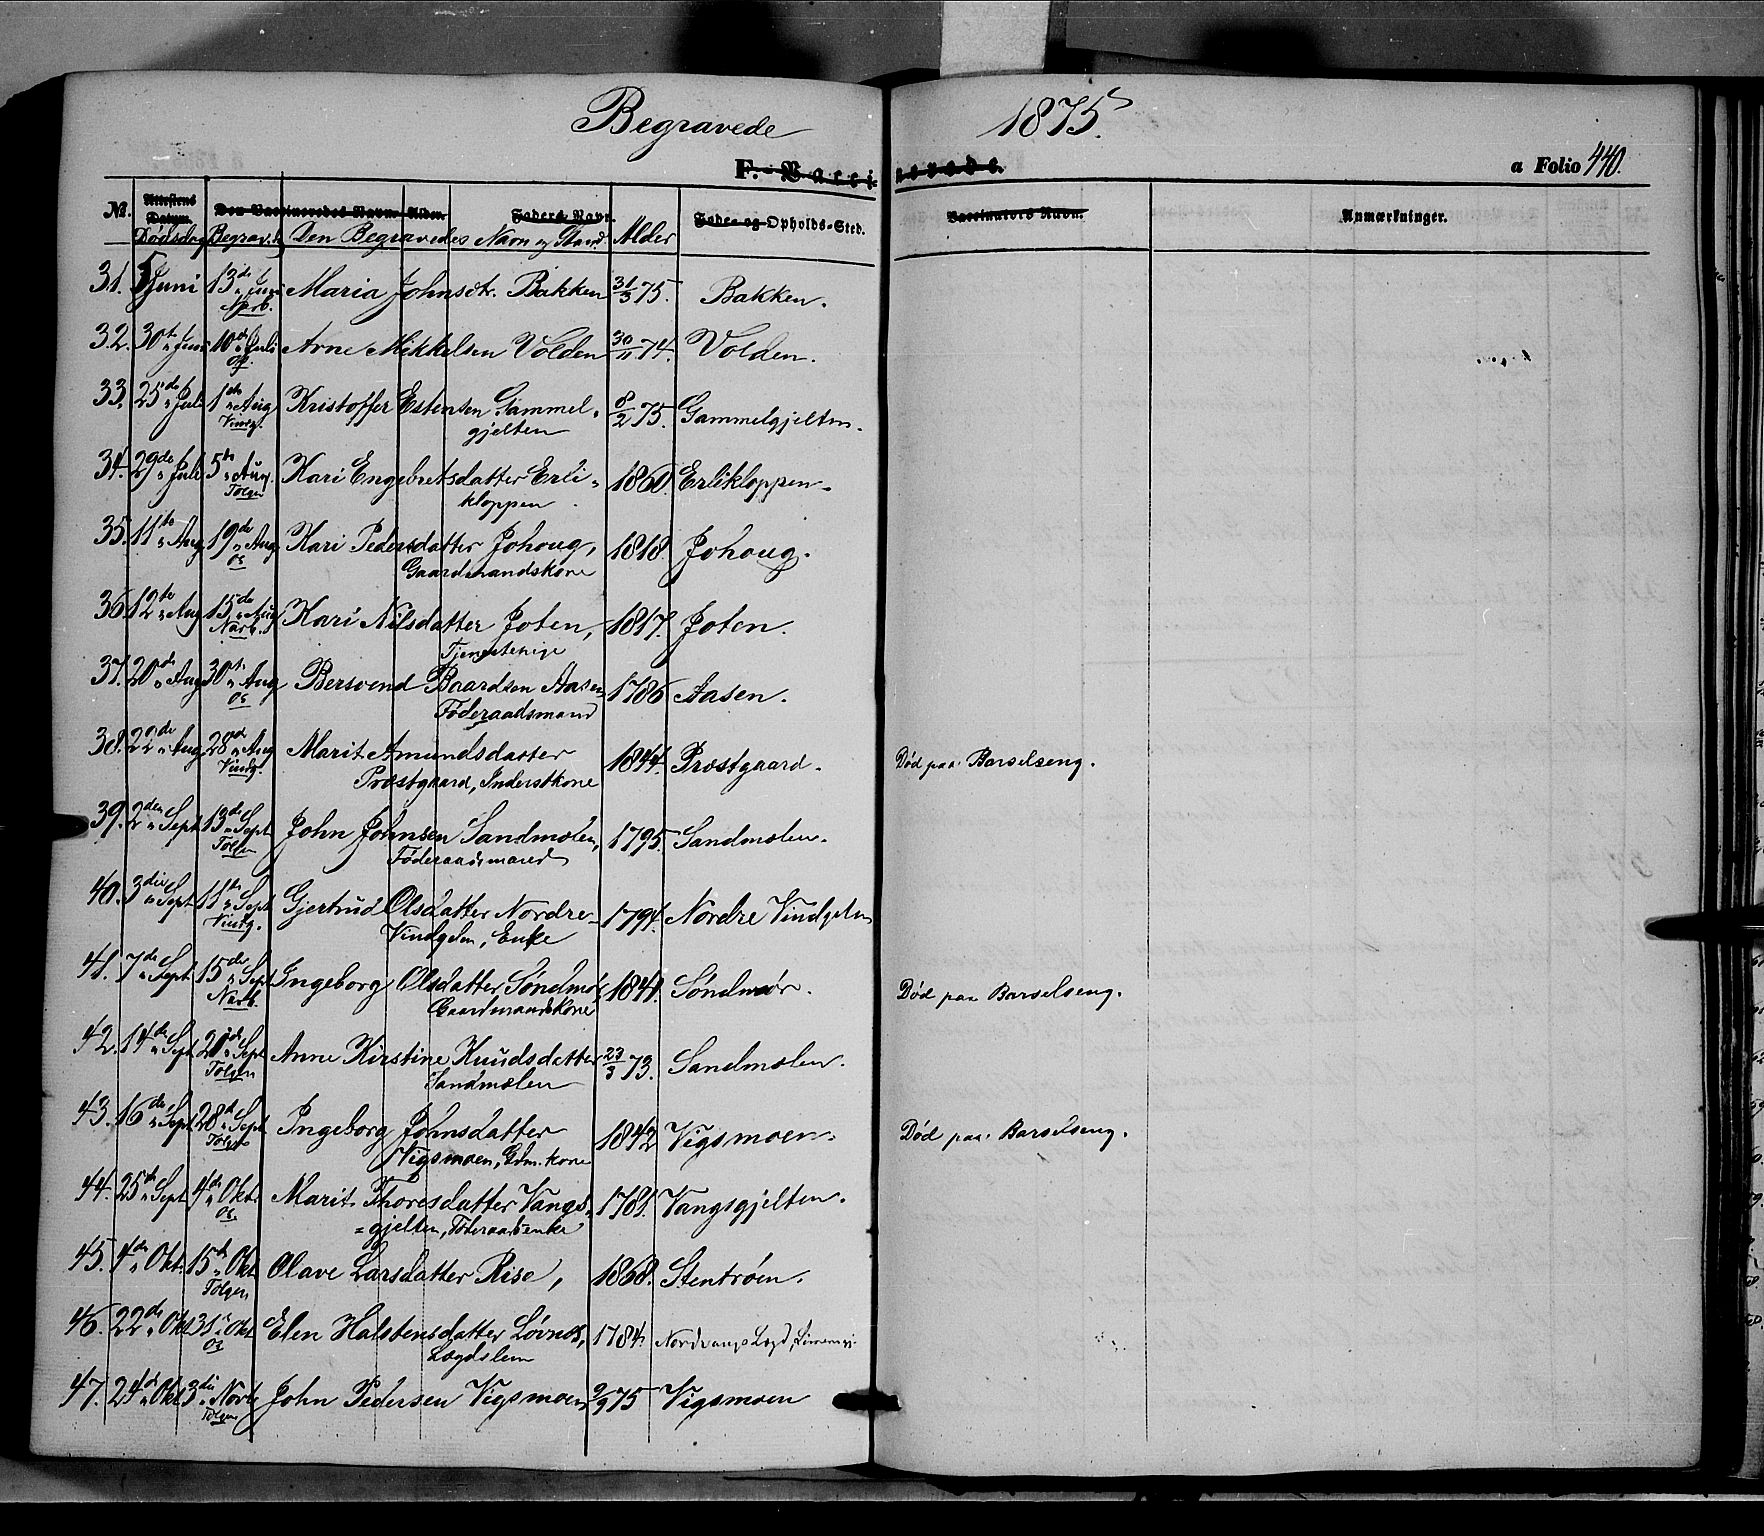 Begravede 1875.
F. Vaccinerede. a Folio 440.
No. Attestens Datum. Den Vaccineredes Navn. Alder. Faders Navn. Føde- og Opholds-Sted. Vaccinators Navn. Anmærkninger.
Dødsdag Begrav.d. Den Begravedes Navn og Stand Alder
31. Juni 13de Juni Maria Johnsdtr. Bakken 31/3 75. Bakken.
Narb.
32. 30te Juni 10de Juli Arne Mikkelsen Volden 30/11 74. Volden.
Os.
33. 25de Juli 1ste Aug Kristoffer Estensen Gammel- 8/2 75. Gammelgjelten.
Vindg. gjelten
34. 29de Juli 5te Aug. Kari Engebretsdatter Erli- 1860. Erlikloppen.
Tolgen kloppen
35. 11te Aug 19de Aug Kari Pedersdatter Johoug, 1818. Johoug.
Os Gaardmandskone
36. 12te Aug 15de Aug Kari Nilsdatter Joten, 1817. Joten.
Narb. Tjenestepige
37. 20de Aug 30te Aug Bersvend Baardsen Aasen 1786 Aasen.
Os Føderaadsmand
38. 22de Aug 28de Aug Marit Amundsdatter 1844. Præstgaard. Død paa Barselseng.
Vindg. Præstgaard, Inderstkone
39. 2den Sept 13de Sept John Johnsen Sandmælen, 1795. Sandmælen.
Tolgen Føderaadsmand
40. 3die Sept 11te Sept Gjertrud Olsdatter Nordre- 1794. Nordre Vindgelen
Vindg. Vindgelen, Enke
41. 7de Sept. 15de Sept Ingeborg Olsdatter Søndmør 1841. Søndmør. Død paa Barselseng.
Narb. Gaardmandskone
42. 14de Sept 20de Sept Anne Kirstine Knudsdatter 23/3 73. Sandmælen.
Tolgen Sandmælen
43. 16de Sept 28de Sept Ingeborg Johnsdatter 1842 Vigsmoen. Død paa Barselseng.
Tolgen Vigsmoen, Gdm. kone
44. 25de Sept 4de Okt. Marit Thoresdatter Vangs- 1781. Vangsgjelten.
Os. =gjelten, Føderaadsenke
45. 4de Okt. 15de Okt Olave Larsdatter Rise, 1868. Stentrøen.
Tolgen
46. 22de Okt 31te Okt Elen Halstensdatter Løvnes, 1784. Nordvangs Lægd,
Os Lægdslem
47. 24de Okt 3die Novbr John Pedersen Vigsmoen 9/9 75 Vigsmoen
Tolgen